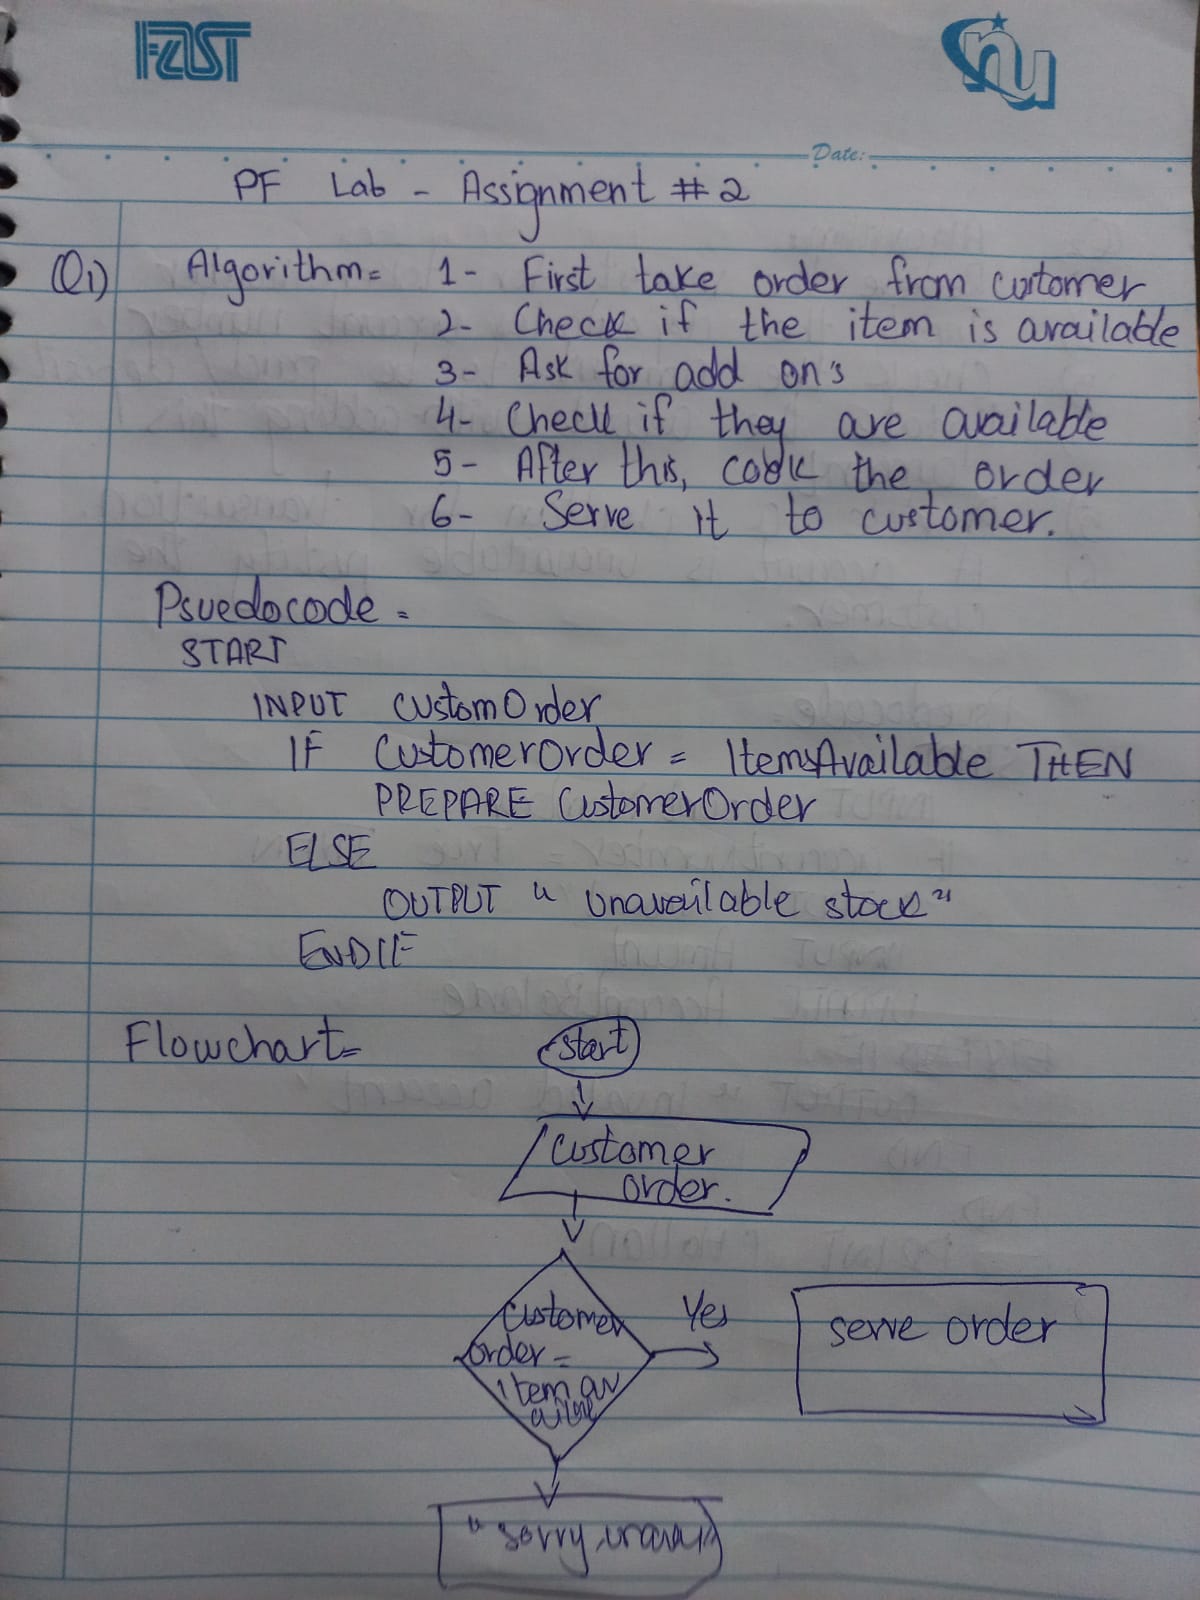 FAST
nu
Date:
PF Lab - Assignment # 2
Q1) Algorithm= 1- First take order from customer
2- Check if the item is available
3- Ask for add on's
4- Check if they are available
5- After this, cook the order
6- Serve it to customer.
Psuedocode =
START
INPUT CustomOrder
IF CustomerOrder = ItemsAvailable THEN
PREPARE CustomerOrder
ELSE
OUTPUT " unavailable stock"
ENDIF
Flowchart=
start
Customer
order.
Customer
order =
item av
Yes
serve order
"sorry unavai